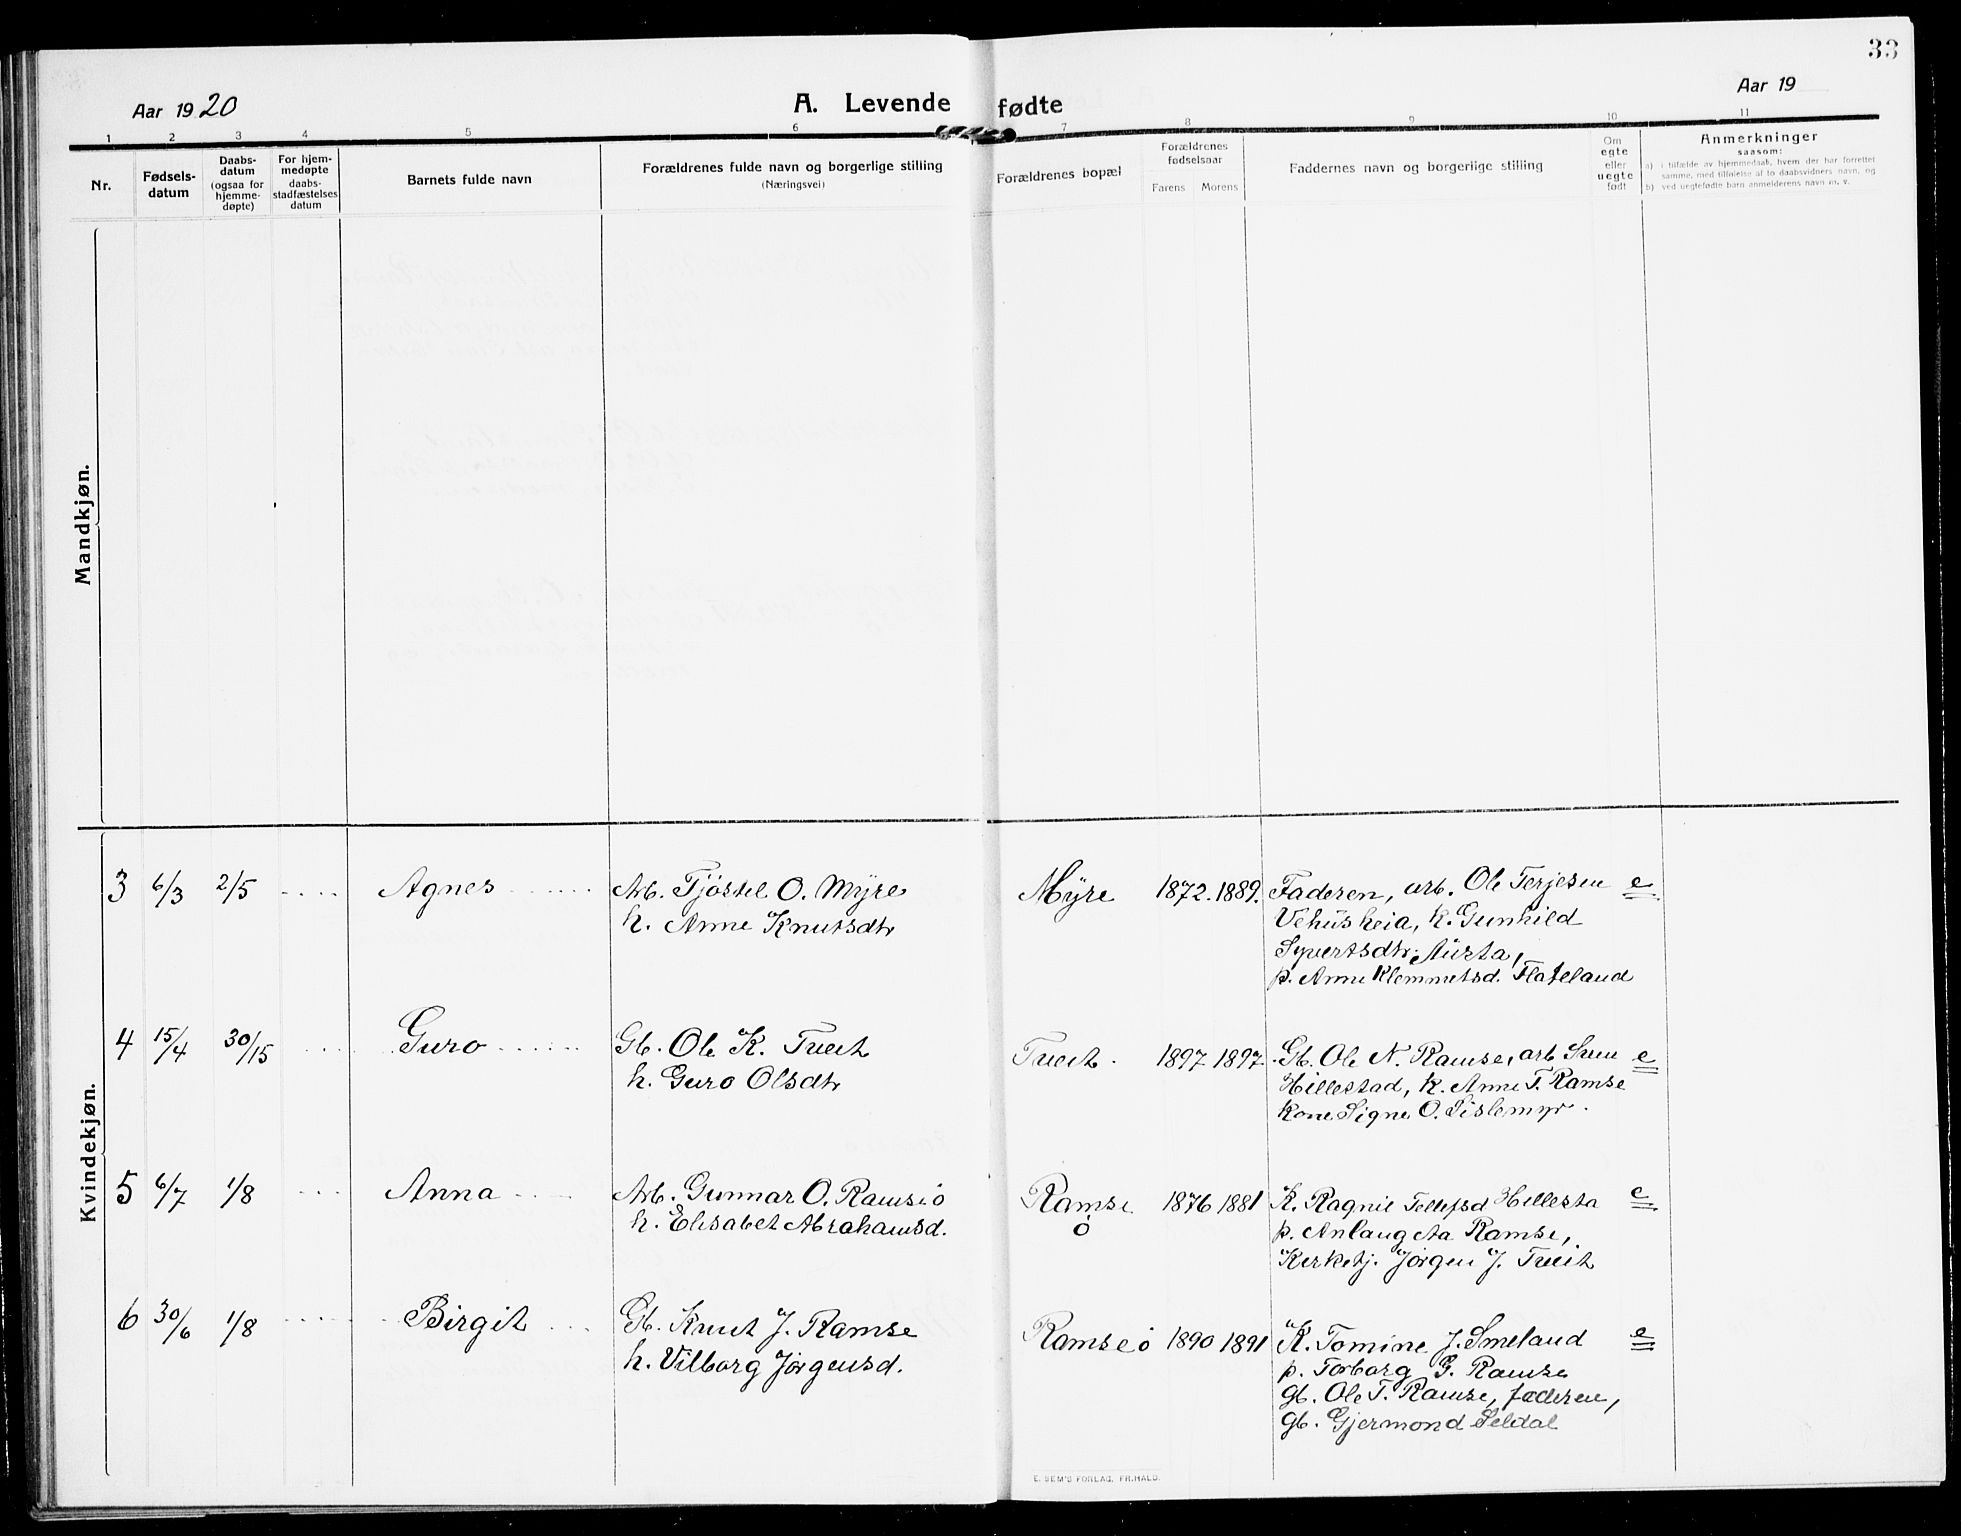 33
Aar 1920
A. Levende fødte
Aar 19
1 2 3 4 5 6 7 8 9 10 11
Nr.
Fødsels-
datum
Daabs-
datum
(ogsaa for
hjemme-
døpte)
For hjem-
medøpte
daabs-
stadfæstelses
datum
Barnets fulde navn
Forældrenes fulde navn og borgerlige stilling
(Næringsvei)
Forældrenes bopæl
Forældrenes
fødselsaar
Farens Morens
Faddernes navn og borgerlige stilling
Om
egte
eller
uegte
født
Anmerkninger
saasom:
a) i tilfælde av hjemmedaab, hvem der har forrettet
samme, med tilføielse af to daabsvidners navn, og
b) ved uegtefødte barn anmelderens navn m. v.
Mandkjøn.
Kvindekjøn.
3 6/3 2/5 Agnes Arb. Tjøstel O. Myre Myre 1872. 1889. Faderen, arb. Ole Terjesen e
h. Anne Knutsdtr Vehusheia, k. Gunhild
Syvertsdtr. Austa,
p. Anne Klemmetsd. Flateland
4 15/4 30/15 Guro Gb. Ole K. Tveit Tveit. 1897 1897. Gb. Ole N. Ramse, arb Sven e
h. Guro Olsdtr Hillestad, k. Anne T. Ramse
kone Signe O. Sislemyr.
5 6/7 1/8 Anna Arb. Gunnar O. Ramseö Ramse 1876 1881 K. Ragnil Tellefsd Hillesta e
h. Elisabet Abrahamsd. ö p. Anlaug Aa Ramse,
Kirketj. Jörgen J. Tveit
6 30/6 1/8 Birgit Gb. Knut J. Ramse Ramseö 1890 1891 K. Tomine J. Smeland e
h. Vilborg Jörgensd. p. Torborg G. Ramse
gb. Ole T. Ramse, faderen,
gb. Gjermond Seldal
E. SEM'S FORLAG, FR.HALD.